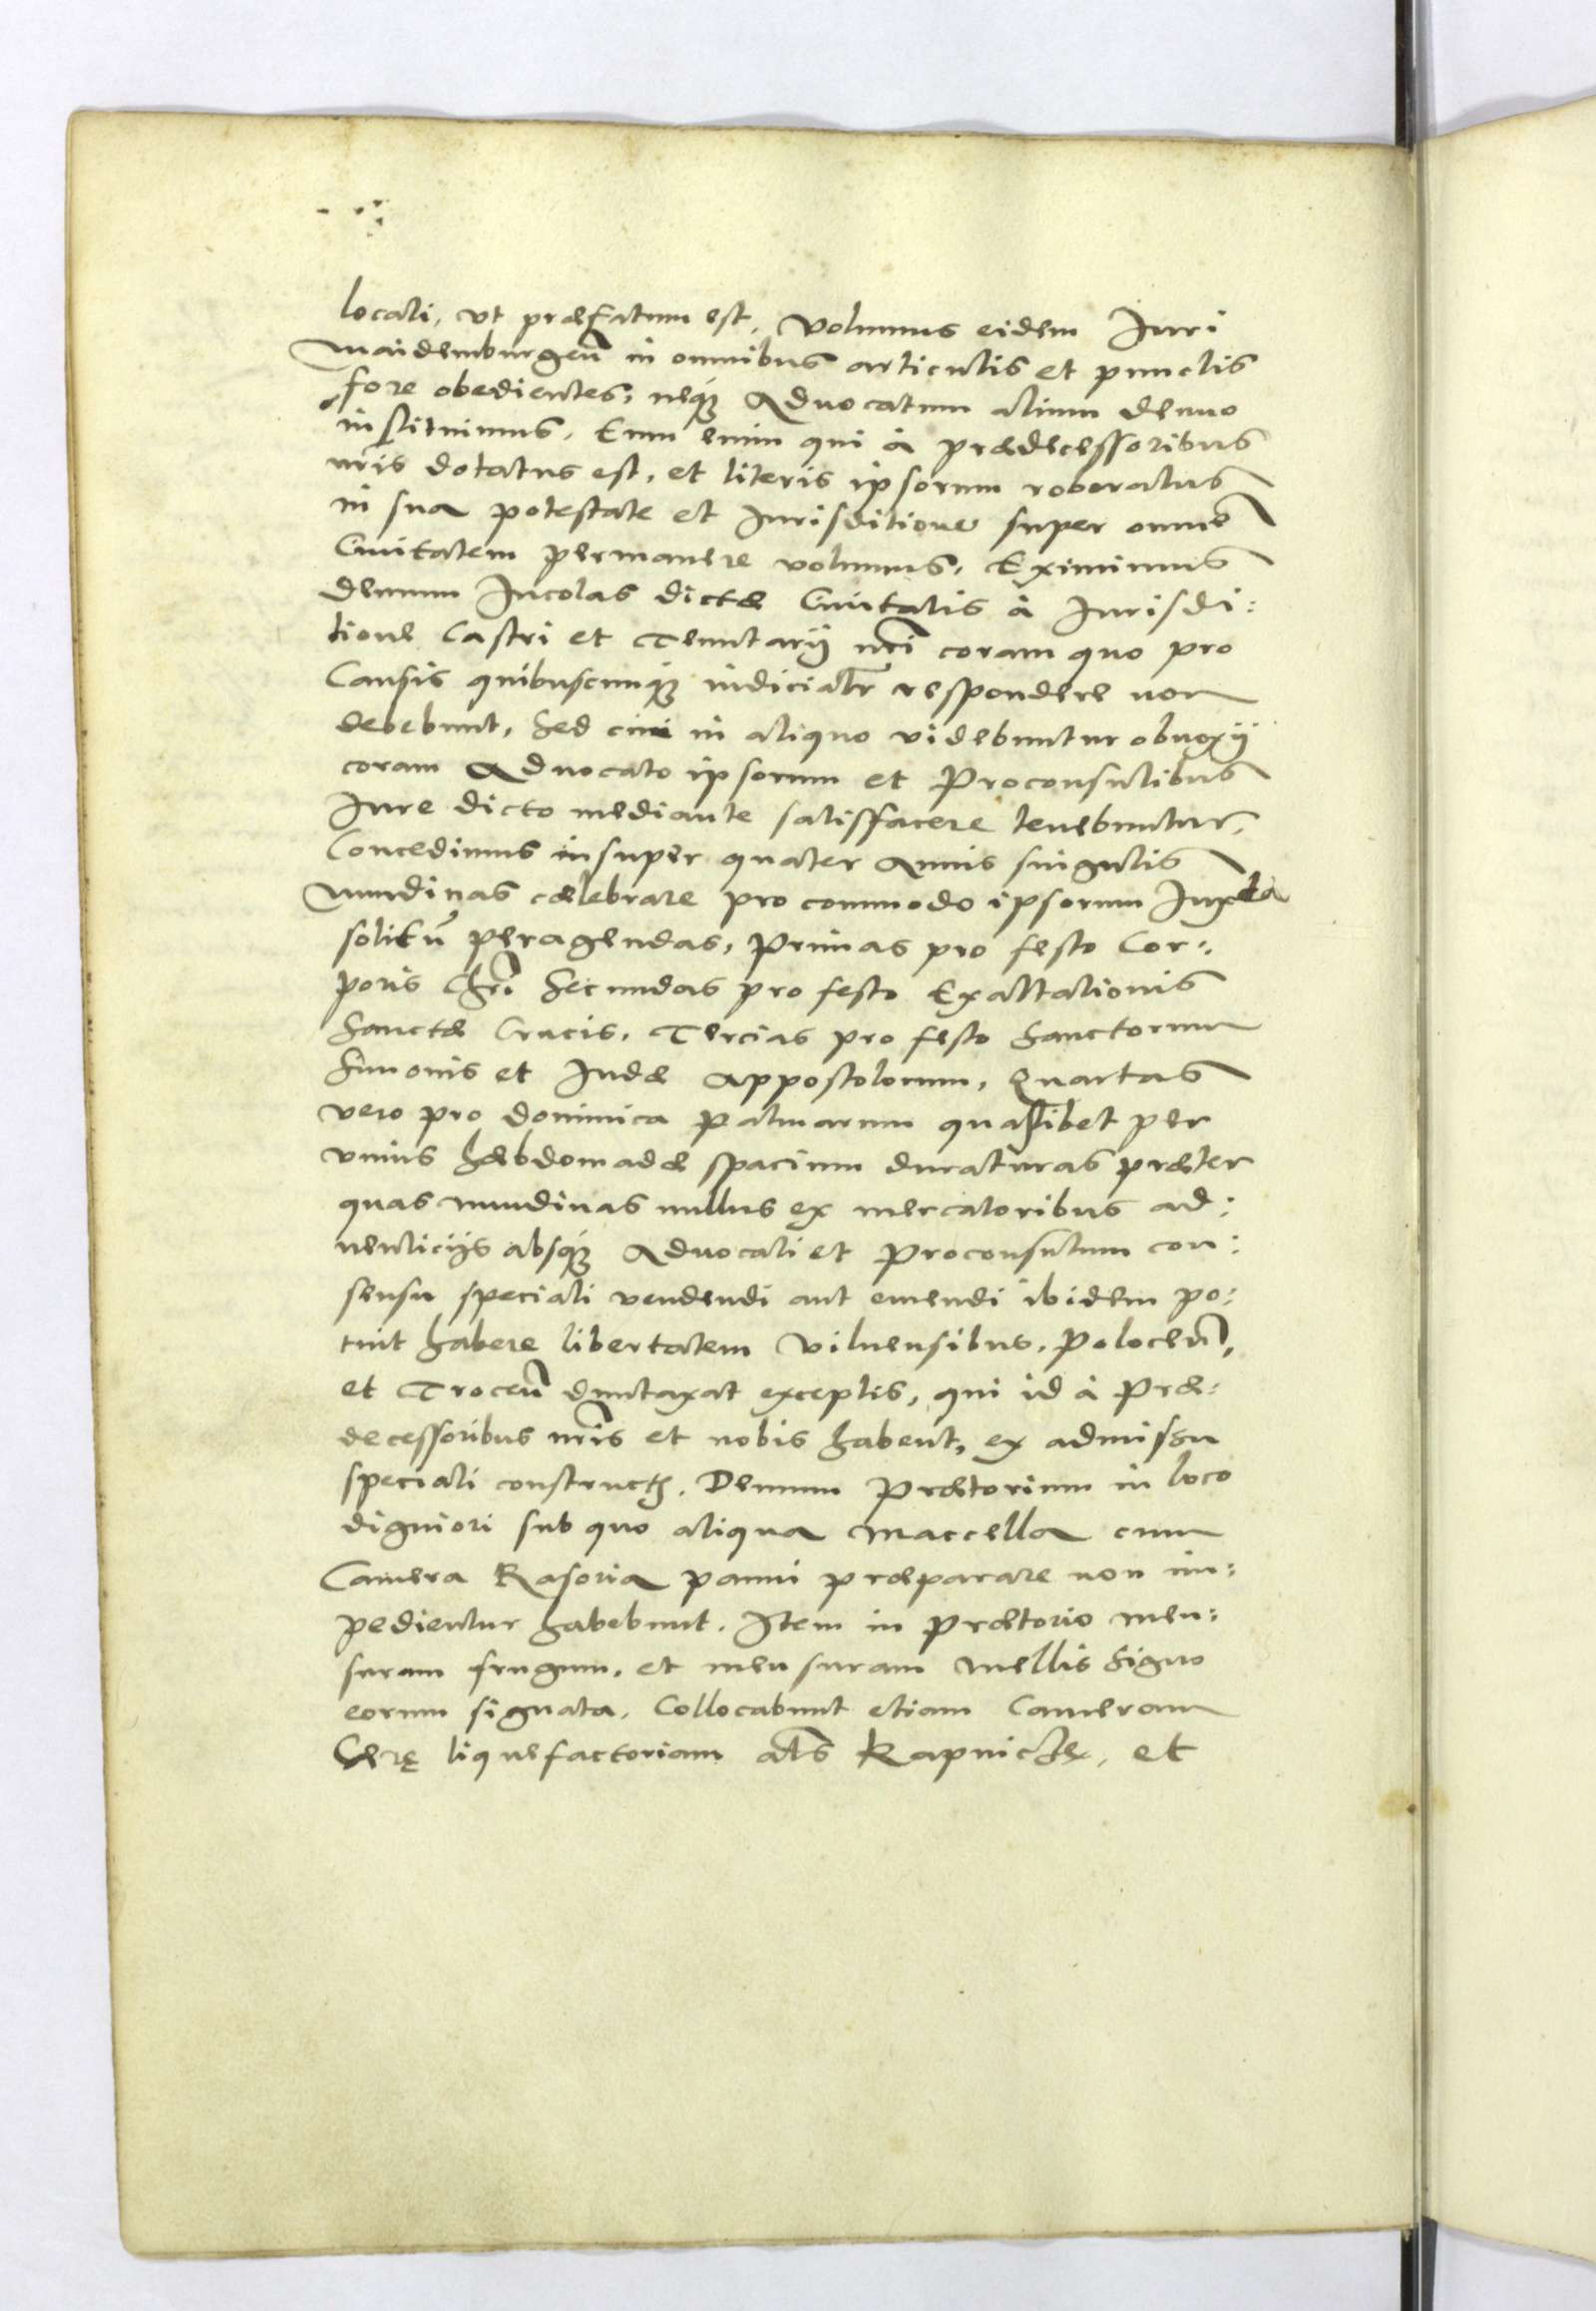 locali, vt præfatum est, volumus eidem Iuri
Maidemburgeñ in omnibus articulis et punctis
fore obedientes, neq́ꝫ Aduocatum alium denuo
instituimus. Eum enim qui à prædecessoribus
nr̃is dotatus est, et literis ipsorum roboratus
in sua potestate et Jurisditione super omnẽ
Ciuitatem permanere volumus. Eximimus
demum Incolas dictæ Ciuitatis à Jurisdi:
tione Castri et Tenutarij nr̃i coram quo pro
Causis quibuscunq́ꝫ iudicialr̃ respondere non
debebunt, sed cui in aliquo videbuntur obnoxij
coram Aduocato ipsorum et Proconsulibus
Iure dicto mediante satisffacere tenebuntur.
Concedimus insuper quater Annis singulis
Nundinas cælebrare pro commodo ipsorum Iuxta
solitũ peragendas, Primas pro festo Cor:
poris Chr̃i Secundas pro festo Exaltationis
Sanctæ Crucis. Tercias pro festo Sanctorum
Simonis et Iudæ Appostolorum, Quartas
vero pro Dominica Palmarum quaslibet per
vnius hæbdomadæ spacium duraturas præter
quas nundinas nullus ex mercatoribus ad:
uenticijs absq́ꝫ Aduocati et Proconsulum con:
sensu speciali vendendi aut emendi ibidem po:
tuit habere libertatem Vilnensibus, Poloceñ,
et Troceñ duntaxat exceptis, qui id à Præ:
decessoribus nr̃is et nobis habent, ex admissu
speciali constructꝫ. Demum Prætorium in loco
digniori sub quo aliqua Maccella cum
Camera Rasoria panni præparare non im:
pedientur habebunt. Item in Prætorio men:
suram frugum, et mensuram Mellis Signo
eorum signata. Collocabunt etiam Cameram
Cerę liquefactoriam als̃ Kapnicze, et